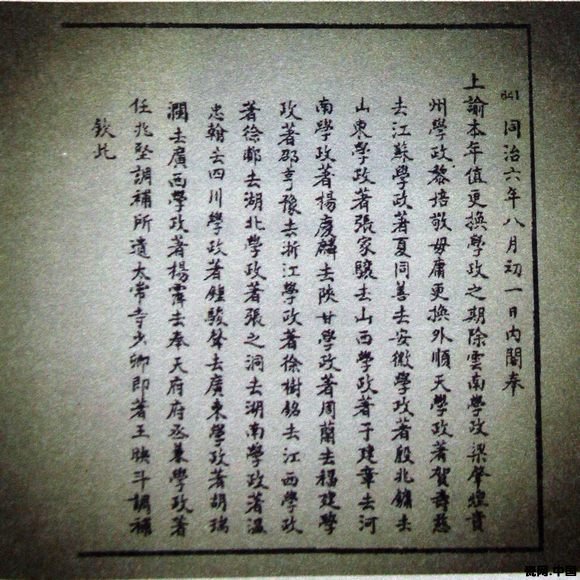 641
同治六年八月初一日內閣奉
上諭本年值更換學政之期除雲南學政梁肇煌貴
州學政黎培敬毋庸更換外順天學政著賀壽慈
去江蘇學政著夏同善去安徽學政著殷兆鏞去
山東學政著張家驤去山西學政著于建章去河
南學政著楊慶麟去陝甘學政著周蘭去福建學
政著邵亨豫去浙江學政著徐樹銘去江西學政
著徐郙去湖北學政著張之洞去湖南學政著溫
忠翰去四川學政著鍾駿聲去廣東學政著胡瑞
瀾去廣西學政著楊霽去奉天府府丞兼學政著
任兆堅調補所遺太常寺少卿即著王映斗調補
欽此
瓷网.中国